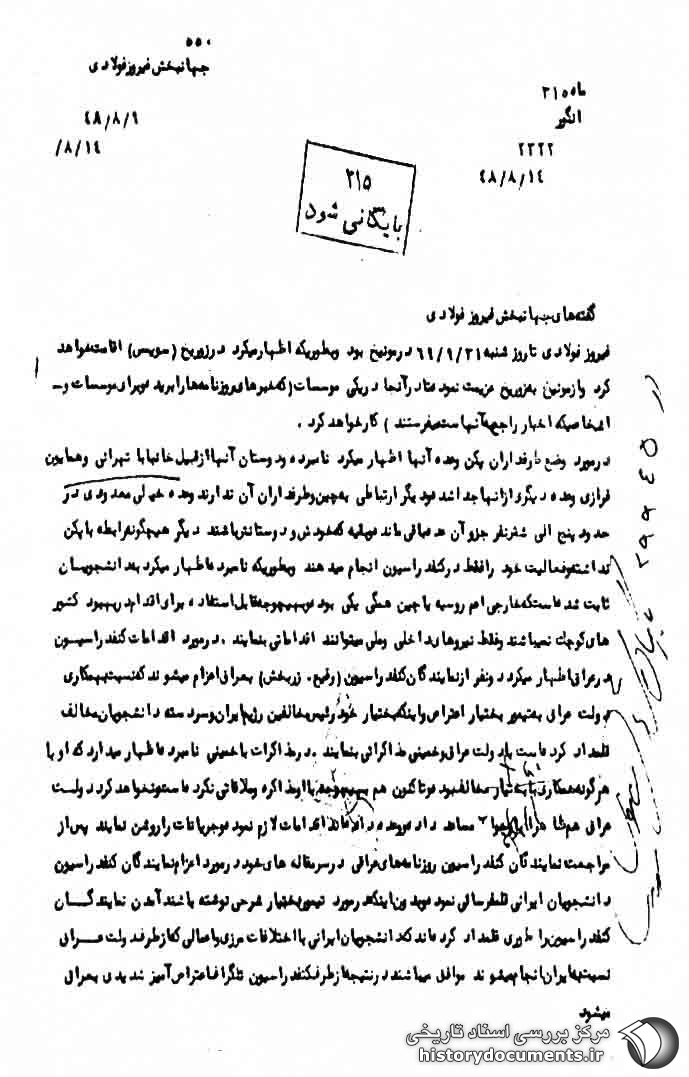 ۵۵۰
جهانبخش فیروز فولادی
۳۱۵
انگور
۴۸/۸/۹
۲۳۲۲
/۸/۱۴
۴۸/۸/۱۴
۳۱۵
بایگانی شود
گفته‌های جهانبخش فیروز فولادی
فیروز فولادی تا روز شنبه در مونیخ بود و بطوریکه اظهار میکرد در زوریخ (سویس) اقامت خواهد
کرد و از مونیخ به زوریخ عزیمت نموده تا در آنجا در یکی موسسات (که خبرهای روزنامه‌ها را بریده و برای موسسات و
اشخاصیکه اخبار راجع به آنهاست میفرستند) کار خواهد کرد.
در مورد وضع طرفداران پکن و عده آنها اظهار میکرد نامبرده و دوستان آنها از قبیل خانبابا تهرانی و همایون
قرازی و عده دیگری از آنها جدا شده و دیگر ارتباطی به چین و طرفداران آن ندارند و عده خیلی معدودی در
حدود پنج الی شش نفر جزو آن عده باقی مانده و بقیه که خودش و دوستانش باشند دیگر هیچگونه رابطه با پکن
نداشته و فعالیت خود را فقط در کنفدراسیون انجام میدهند و بطوریکه نامبرده اظهار میکرد به دانشجویان
ثابت شده است که خارجی اعم روسیه یا چین همگی یکی بوده و بهیچوجه قابل استفاده برای اقدام در بهبود کشور
های کوچک نمیباشند و فقط نیروهای داخلی و ملی میتوانند اقداماتی بنمایند. در مورد اقدامات کنفدراسیون
در عراق اظهار میکرد دو نفر از نمایندگان کنفدراسیون (رفیع. زربخش) بعراق اعزام میشوند که نسبت بهمکاری
دولت عراق به تیمور بختیار اعتراض و اینکه بختیار خود رئیس مخالفین رژیم ایران و سردسته دانشجویان مخالف
قلمداد کرده است با دولت عراق و خمینی مذاکراتی بنمایند. در مذاکرات با خمینی نامبرده اظهار میدارد که او با
هرگونه همکاری با بختیار مخالف بوده و تاکنون هم بهیچوجه با او مذاکره و ملاقاتی نکرده است و نخواهد کرد دولت
عراق هم مساعد داده و وعده داده‌اند اقدامات لازم نموده و جریانات را روشن نمایند پس از
مراجعت نمایندگان کنفدراسیون روزنامه‌های عراقی در سرمقاله های خود در مورد اعزام نمایندگان کنفدراسیون
دانشجویان ایرانی قلمفرسائی نموده و بدون اینکه در مورد تیمور بختیار شرحی نوشته باشند آمدن نمایندگان
کنفدراسیون را طوری قلمداد کرده‌اند که دانشجویان ایرانی با اختلافات مرزی و اعمالی که از طرف دولت عراق
نسبت به ایران انجام میشوند موافق میباشند در نتیجه از طرف کنفدراسیون تلگراف اعتراض آمیز شدیدی بعراق
میشود
مرکز بررسی اسناد تاریخی
historydocuments.ir